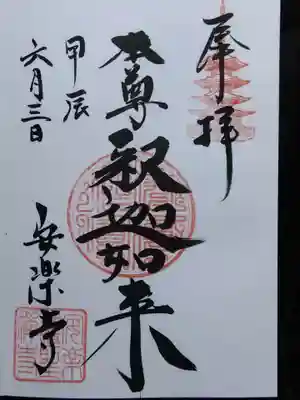 奉拝
本尊釈迦如来
甲辰
六月三日
安楽寺